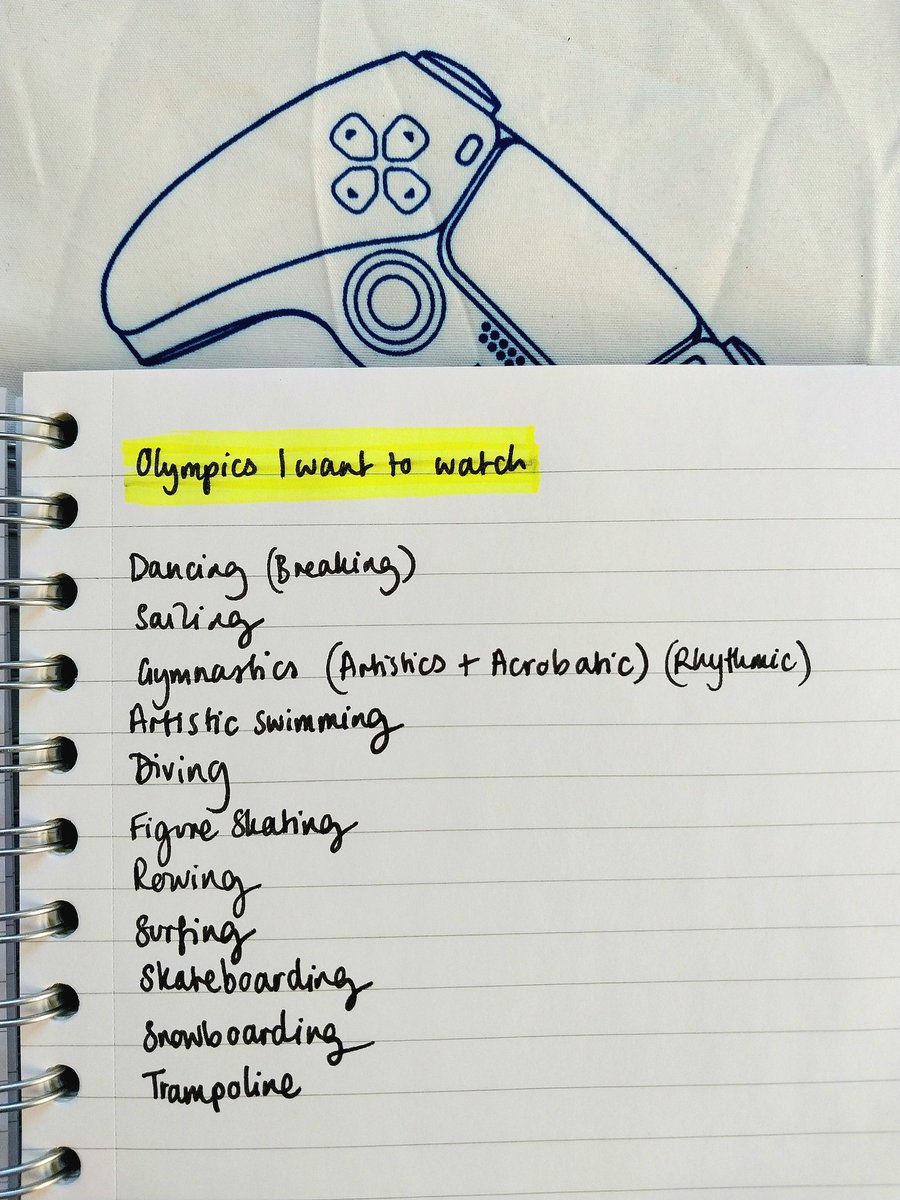 Olympics I want to watch
Dancing (Breaking)
Sailing
Gymnastics (Artistics + Acrobatic) (Rhythmic)
Artistic swimming
Diving
Figure Skating
Rowing
Surfing
Skateboarding
Snowboarding
Trampoline